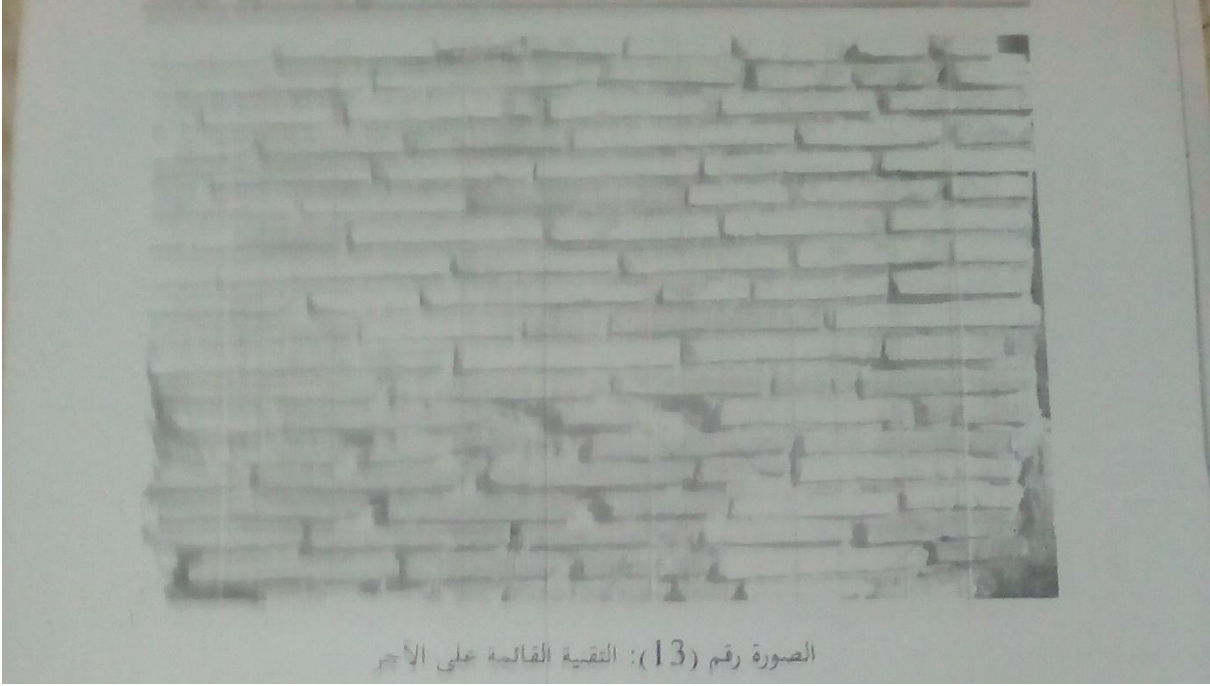 الصورة رقم (13): التقنية القائمة على الآجر